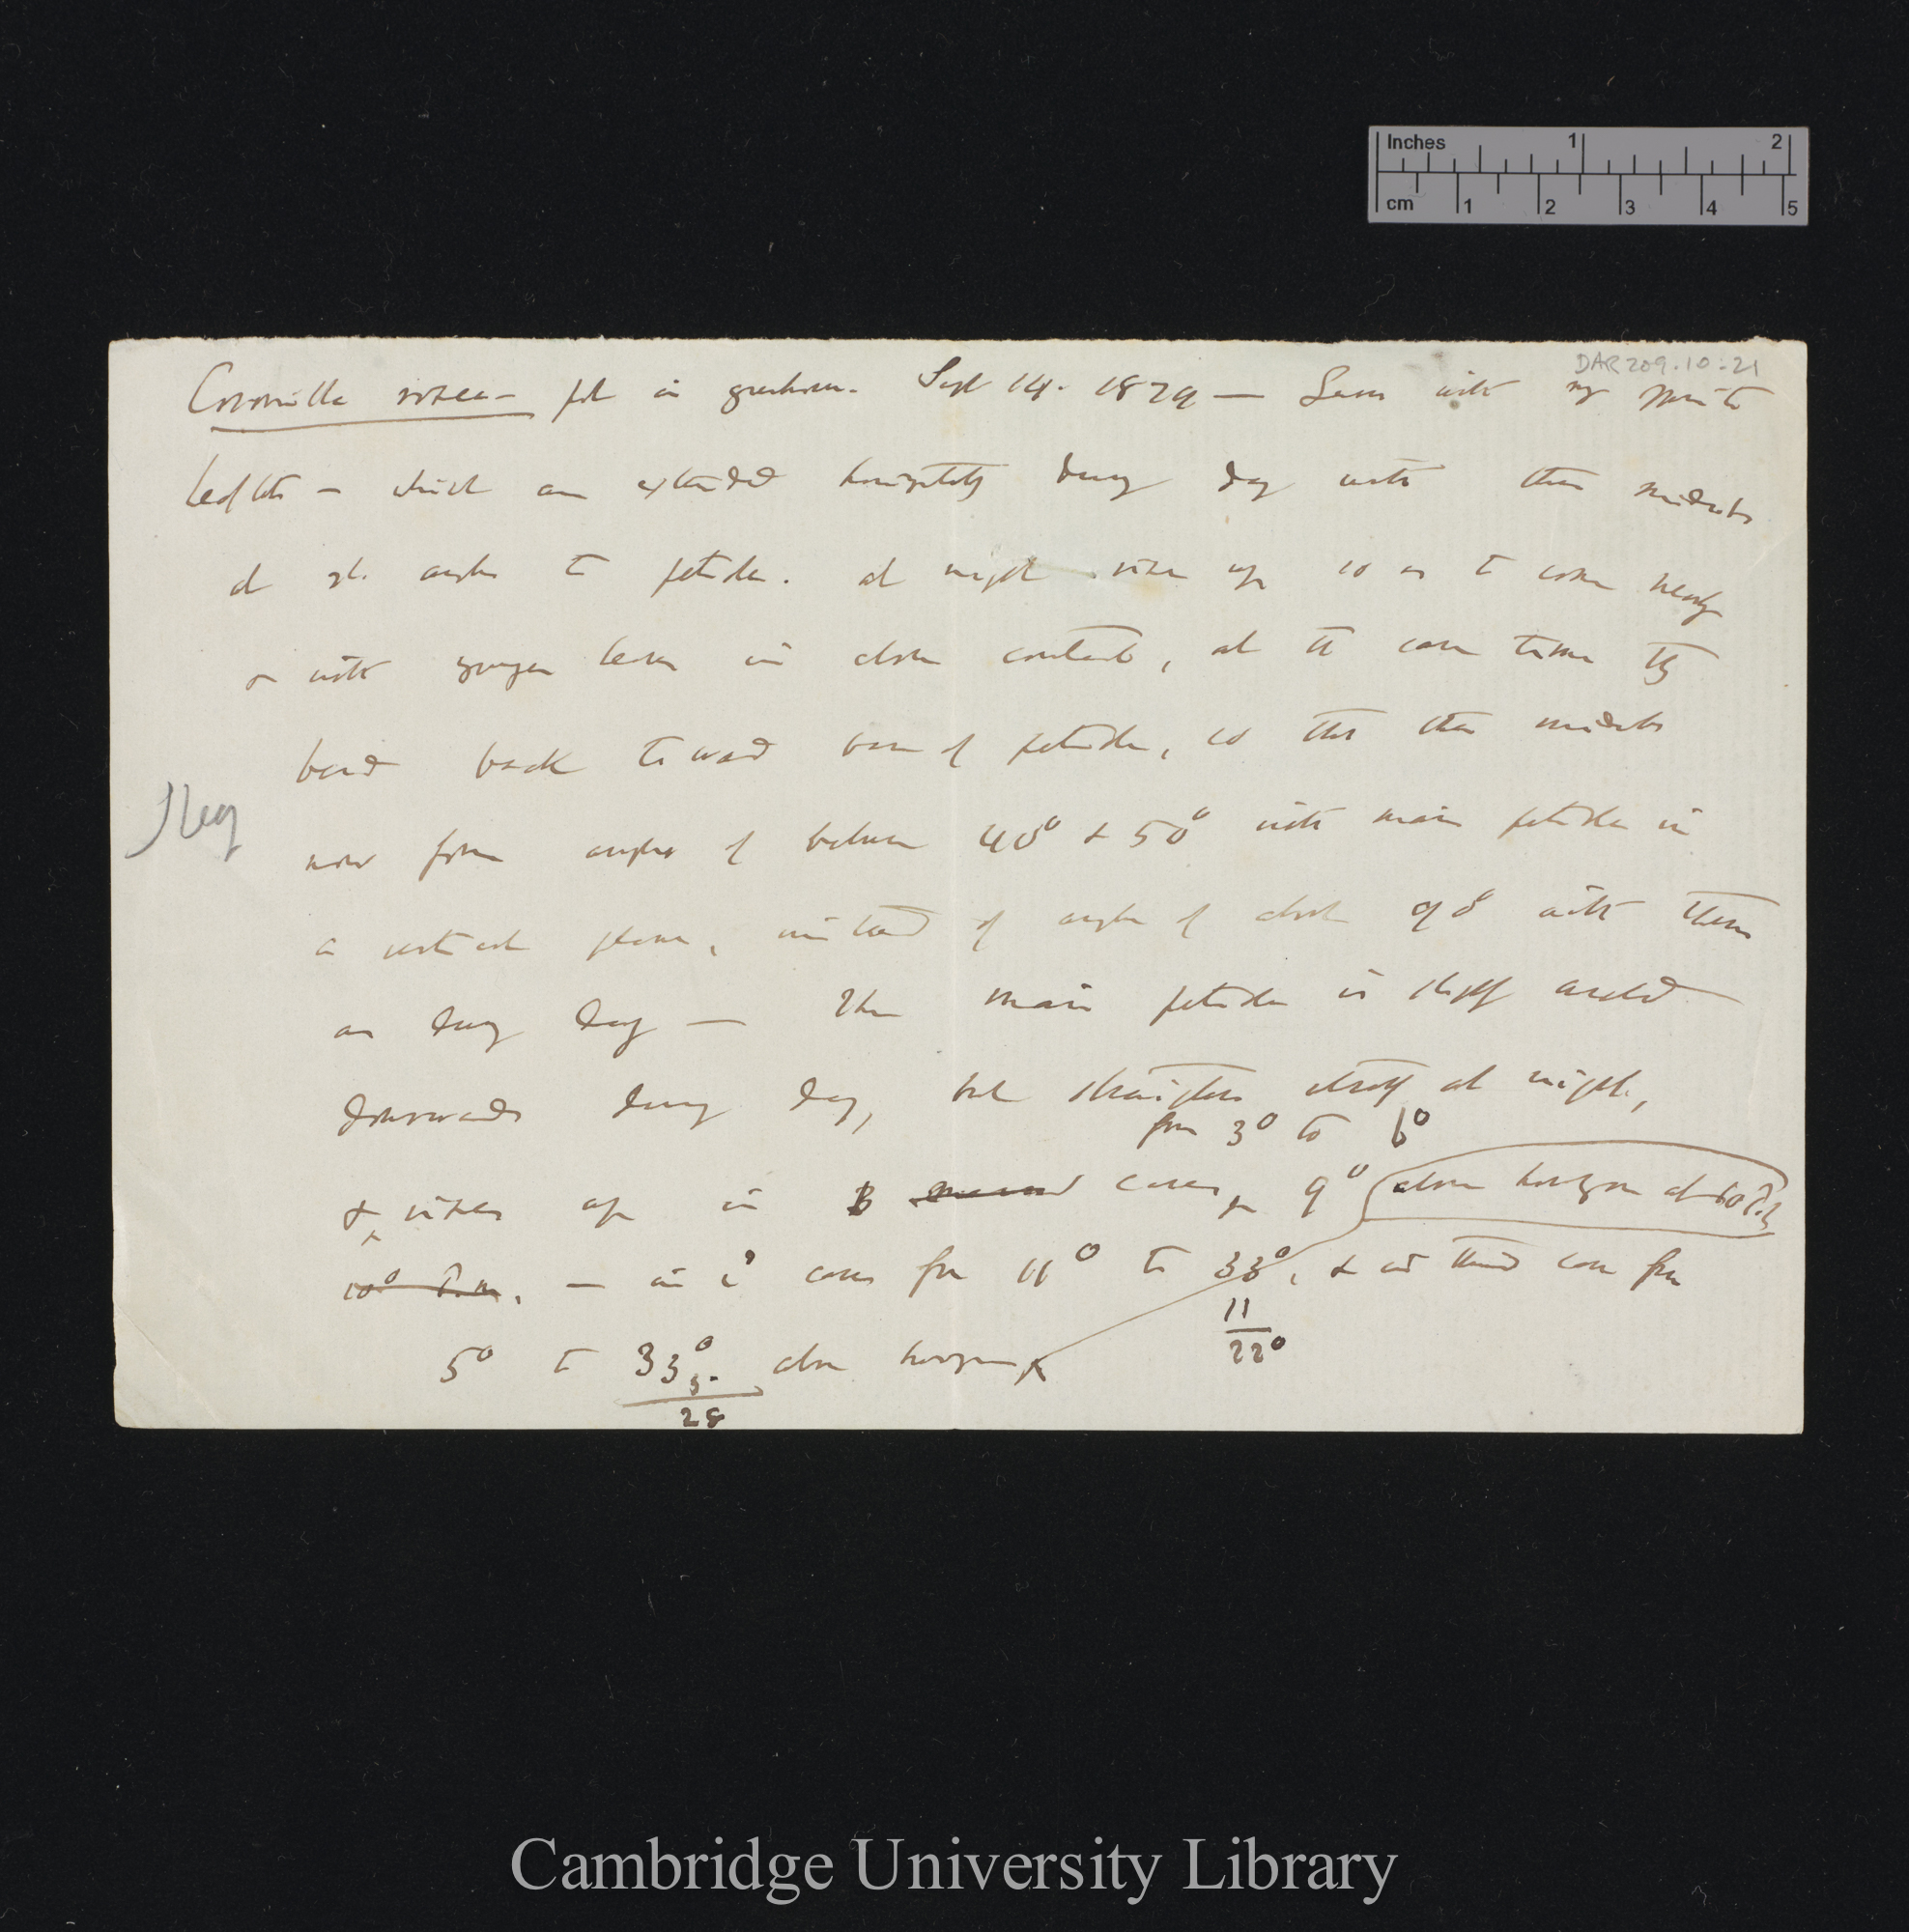 Inches 1 2
cm 1 2 3 4 5
DAR 209.10:21
Coronilla rosea — pot in greenhouse. Sept 14. 1879 — Leaves with
leaflets — which are extended horizontally during day with their midribs
at rt. angles to petiole. at night rise up so as to come nearly
or with younger leaves in close contact, at the same time they
bend back toward base of petiole, so that their midribs
Sleep
now form angles of between 40° & 50° with main petiole in
a vertical plane, instead of angle of about 90° with them
as during day — The main petiole is slightly arched
downwards during day, but straightens itself at night,
from 3° to 6°
& rises up in 3 cases, 9° above horizon at 10 P.m
10° P.m. — in 2° cases from 11° to 33°, & in third case from
11
22°
5° to 33° above horizon
5.
28
Cambridge University Library